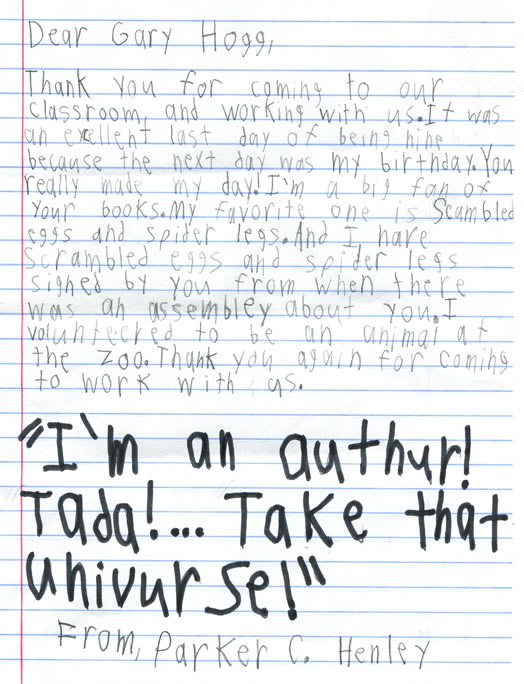 Dear Gary Hogg,
Thank you for coming to our
classroom, and working with us.It was
an exellent last day of being nine
because the next day was my birthday.You
really made my day!I'm a big fan of
your books.My favorite one is Scambled
eggs and spider legs.And I have
scrambled eggs and spider legs
signed by you from when there
was an assembley about you.I
volunteered to be an animal at
the zoo.Thank you again for coming
to work with us.
"I'm an authur!
Tada!... Take that
univurse!"
From, Parker C. Henley